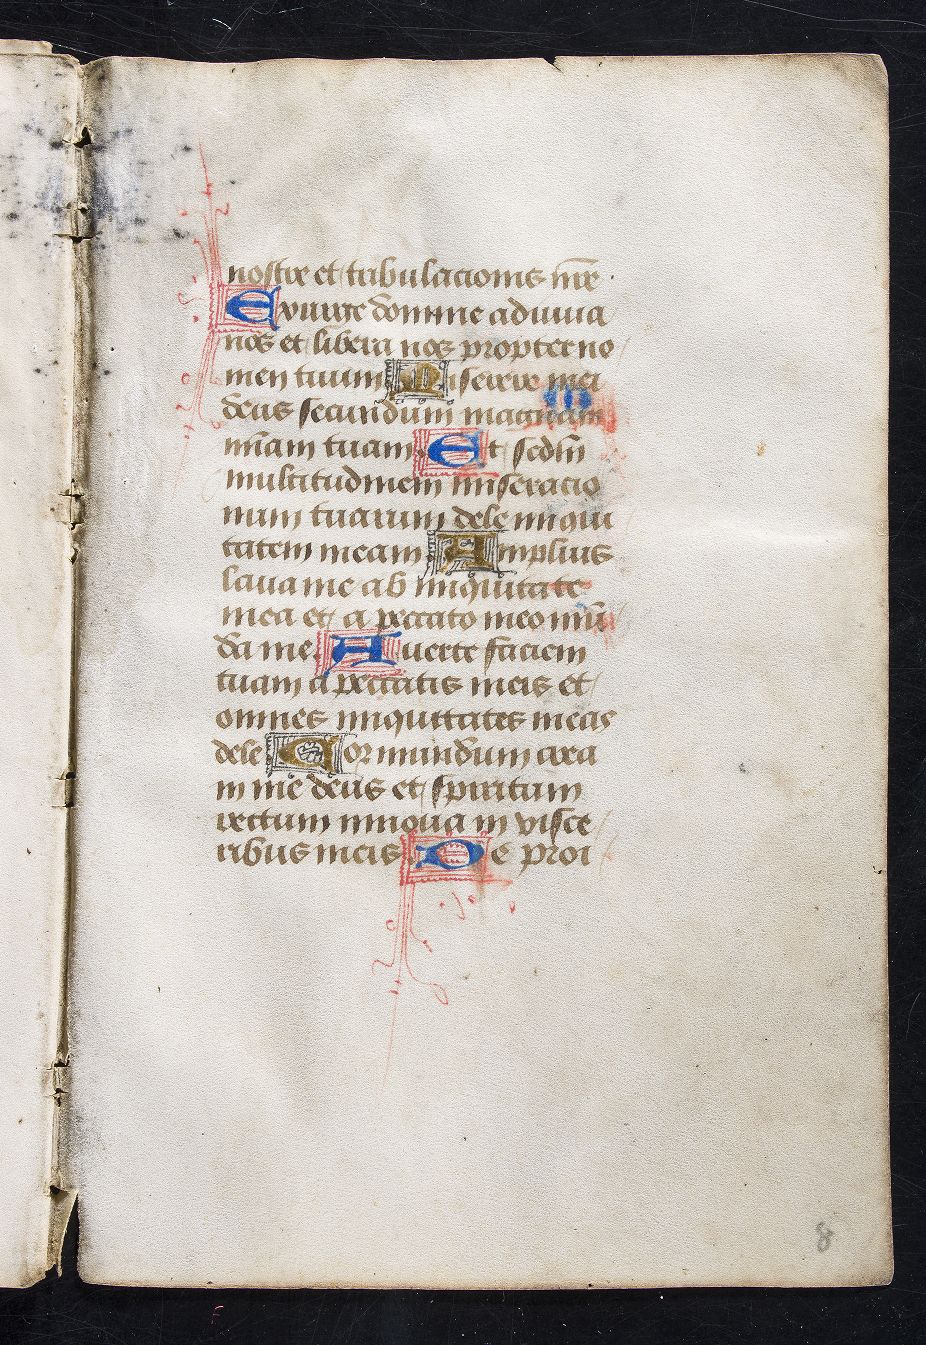 nostre et tribulacionis nr̄e ·
Exurge domine adiuua
nos et libera nos propter no
men tuum Miserere mei
deus secundum magnam
mīam tuam Et scd̄m
multitudinem miseracio
num tuarum dele iniqui
tatem meam Amplius
laua me ab iniquitate
mea et a peccato meo mū
da me Auerte faciem
tuam a peccatis meis et
omnes iniquitates meas
dele Cor mundum crea
in me deus et spiritum
rectum innoua in visce
ribus meis De proi
8